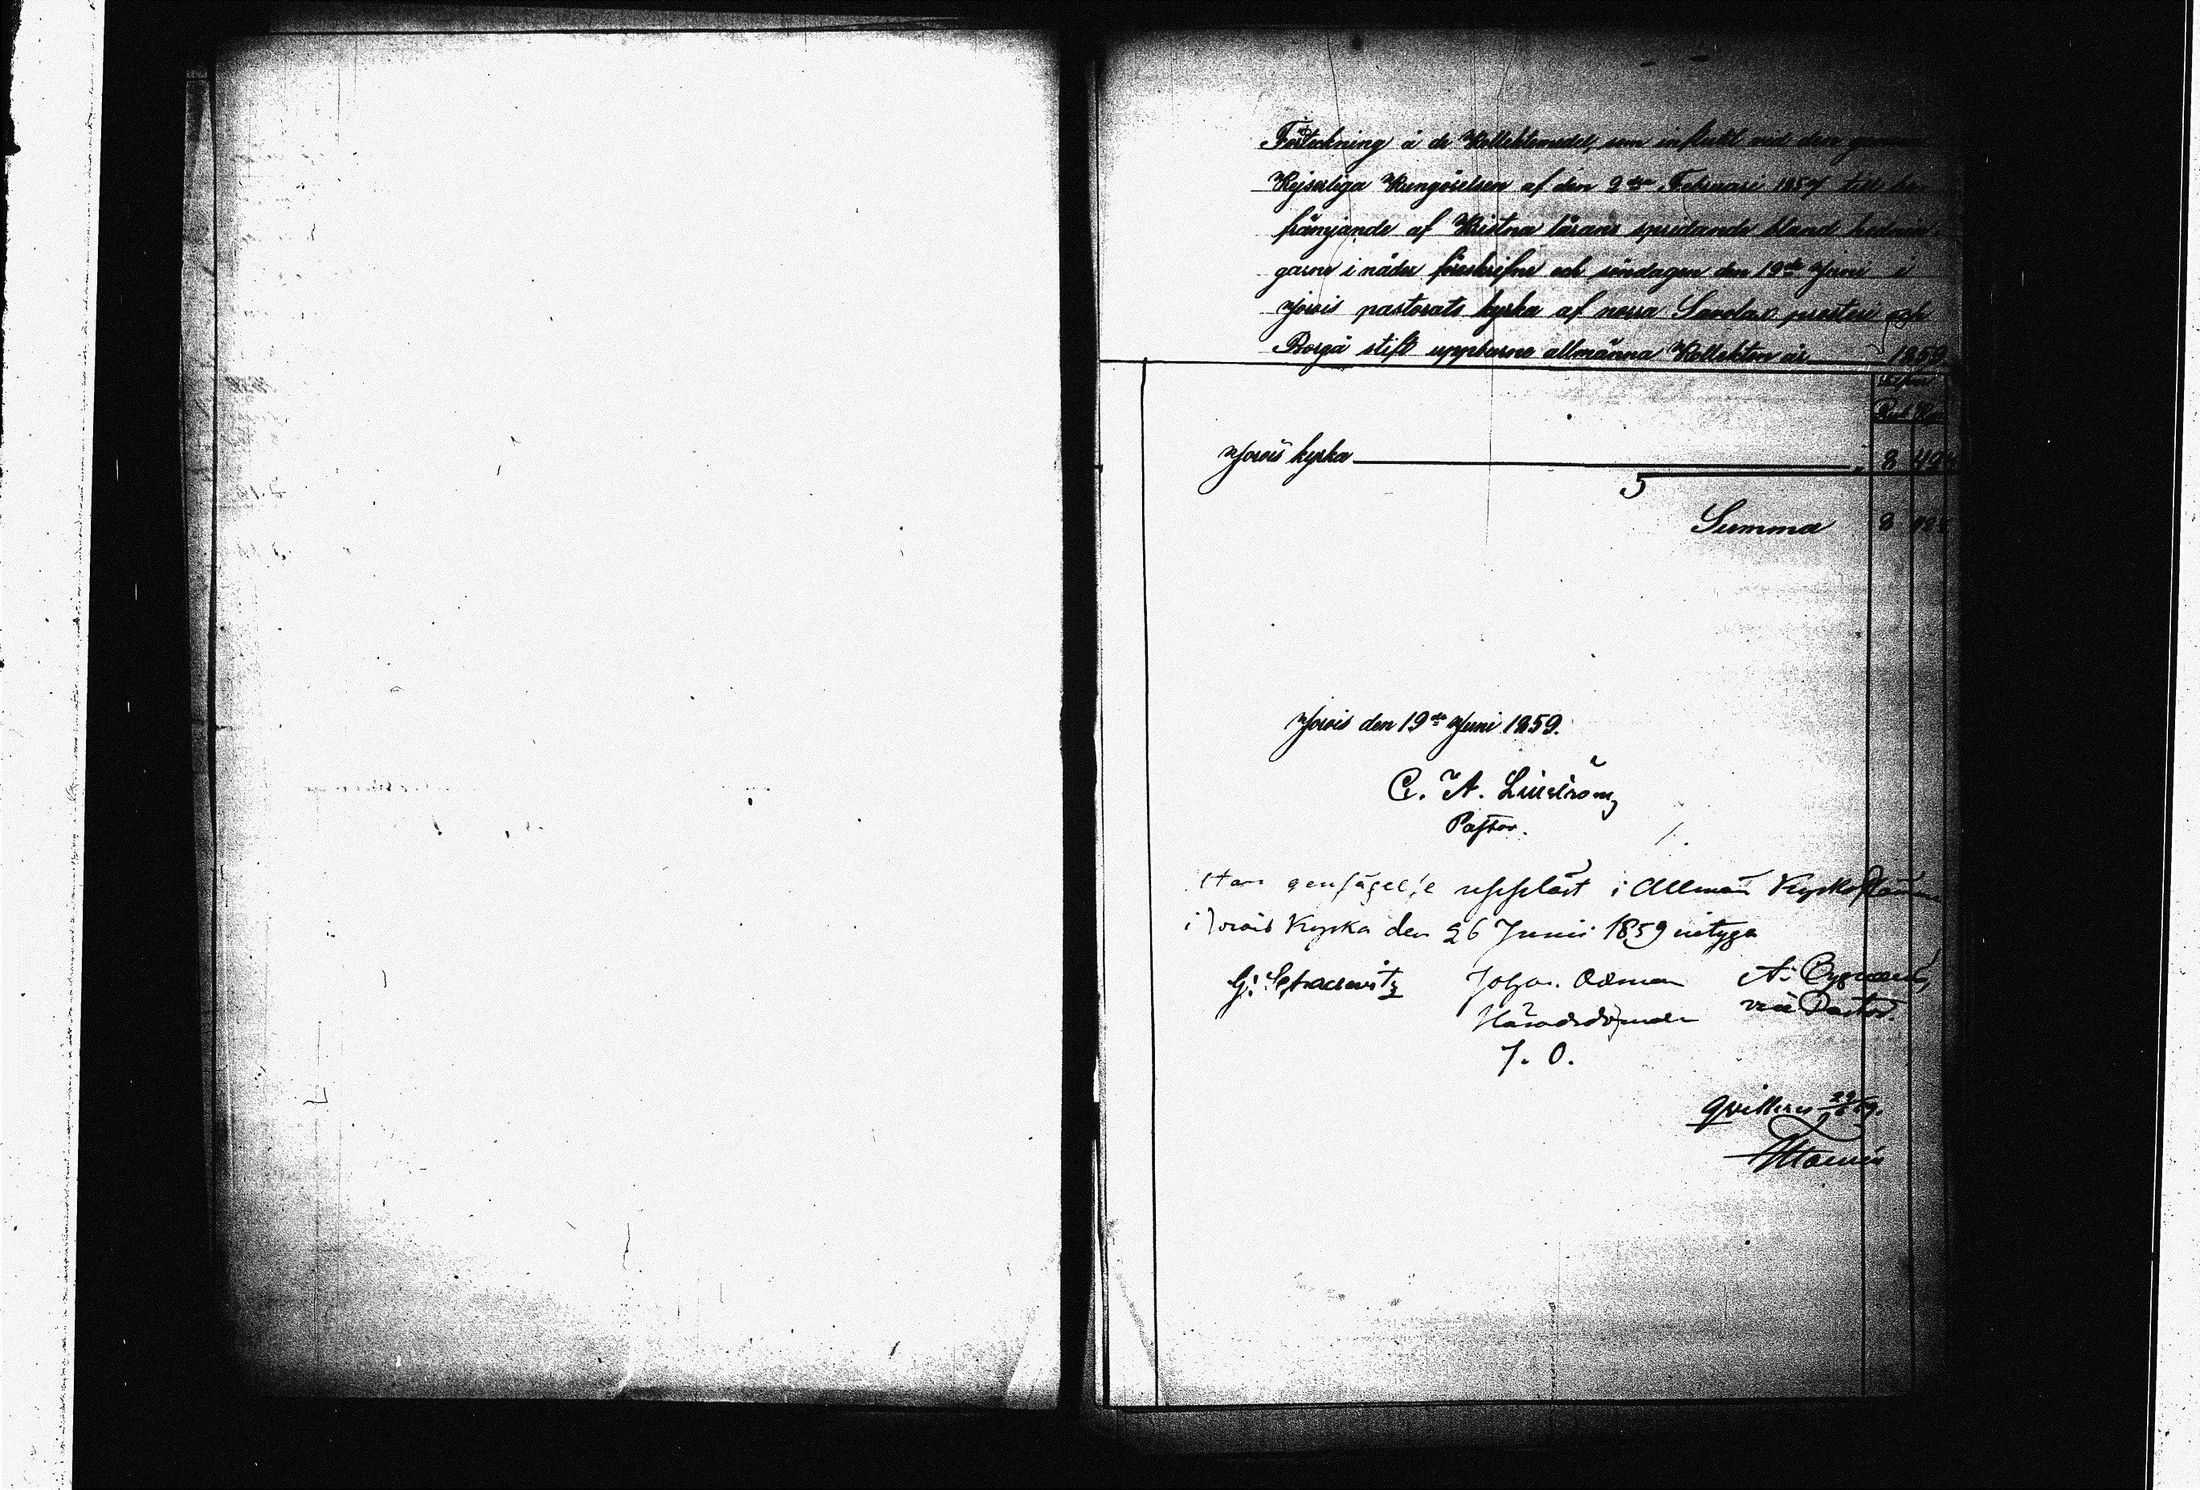 Förteckning å de Kollektemedel, som influtit vid den genom
Kejserliga Kungörelsen af den 9de Februari 1857 till
främjande af Kristna lärans spridande bland hednin-
garne i nåder föreskrifne och söndagen den 19de Juni i
Jorois pastorats kyrka af norra Savolax prosteri och
Borgå stift uppburne allmänna Kollekten år 1859
Rub. Kop
Jorois kyrka 8 49
Summa 8
Jorois den 19de Juni 1859.
C. A. Lindström
Pastor.
uppläst i Allmän Kyrkostämma
i Jorois Kyrka den 26 Junii 1859 intyga
Johan Ödman A. Cygnaeus
Häradsdomare vice Pastor.
J. O.
Qvitteras